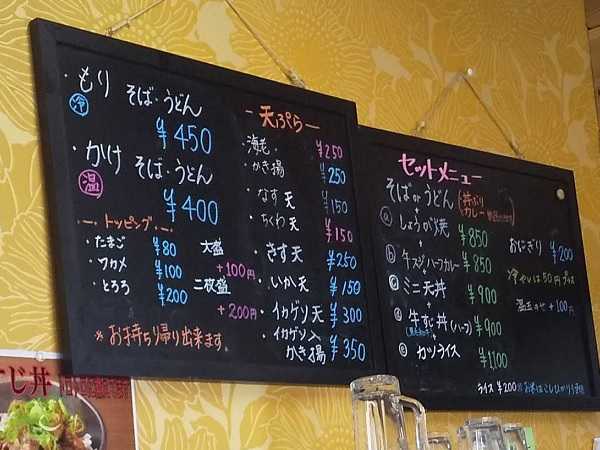 ・もり そば・うどん
冷 ¥450
・かけ そば・うどん
温 ¥400
トッピング
・たまご ¥80
・ワカメ ¥100
・とろろ ¥200
大盛 +100円
二枚盛 +200円
※お持ち帰り出来ます。
天ぷら
・海老 ¥250
・かき揚 ¥250
・なす天 ¥150
・ちくわ天 ¥150
・きす天 ¥250
・いか天 ¥150
・イカゲソ天 ¥300
・イカゲソ入かき揚 ¥350
セットメニュー
そばorうどん
丼ぶり
カレー
ⓐ しょうが焼 ¥850
ⓑ 牛スジハーフカレー ¥850
ⓒ ミニ天丼 ¥900
ⓓ 牛すじ丼(ハーフ) ¥900
ⓔ カツライス ¥1,100
おにぎり ¥200
冷やしは50円プラス
温玉のせ+100円
ライス ¥200
じ丼